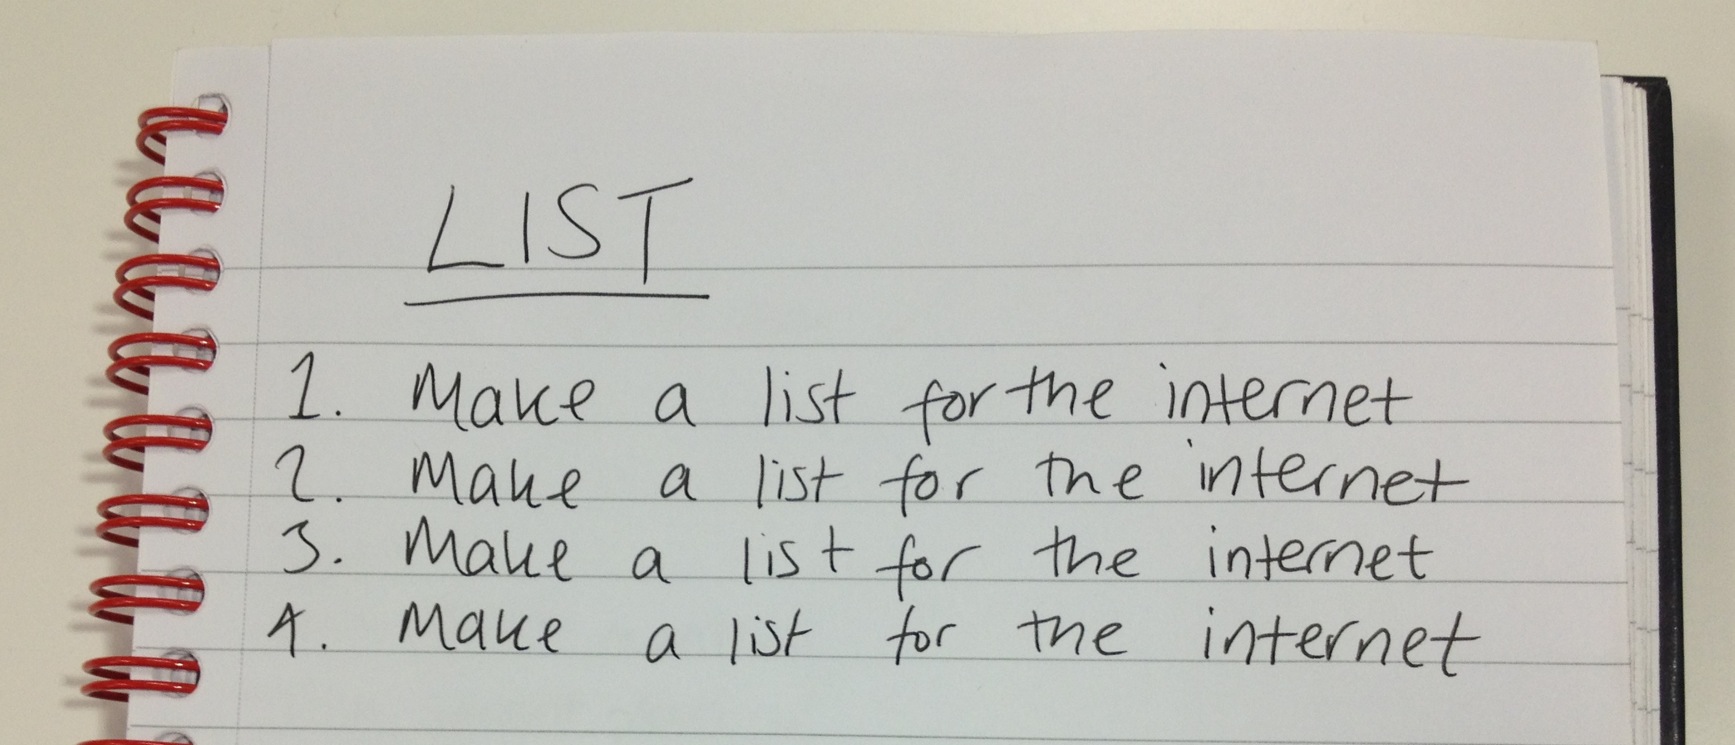 LIST
1. Make a list for the internet
2. Make a list for the internet
3. Make a list for the internet
4. Make a list for the internet